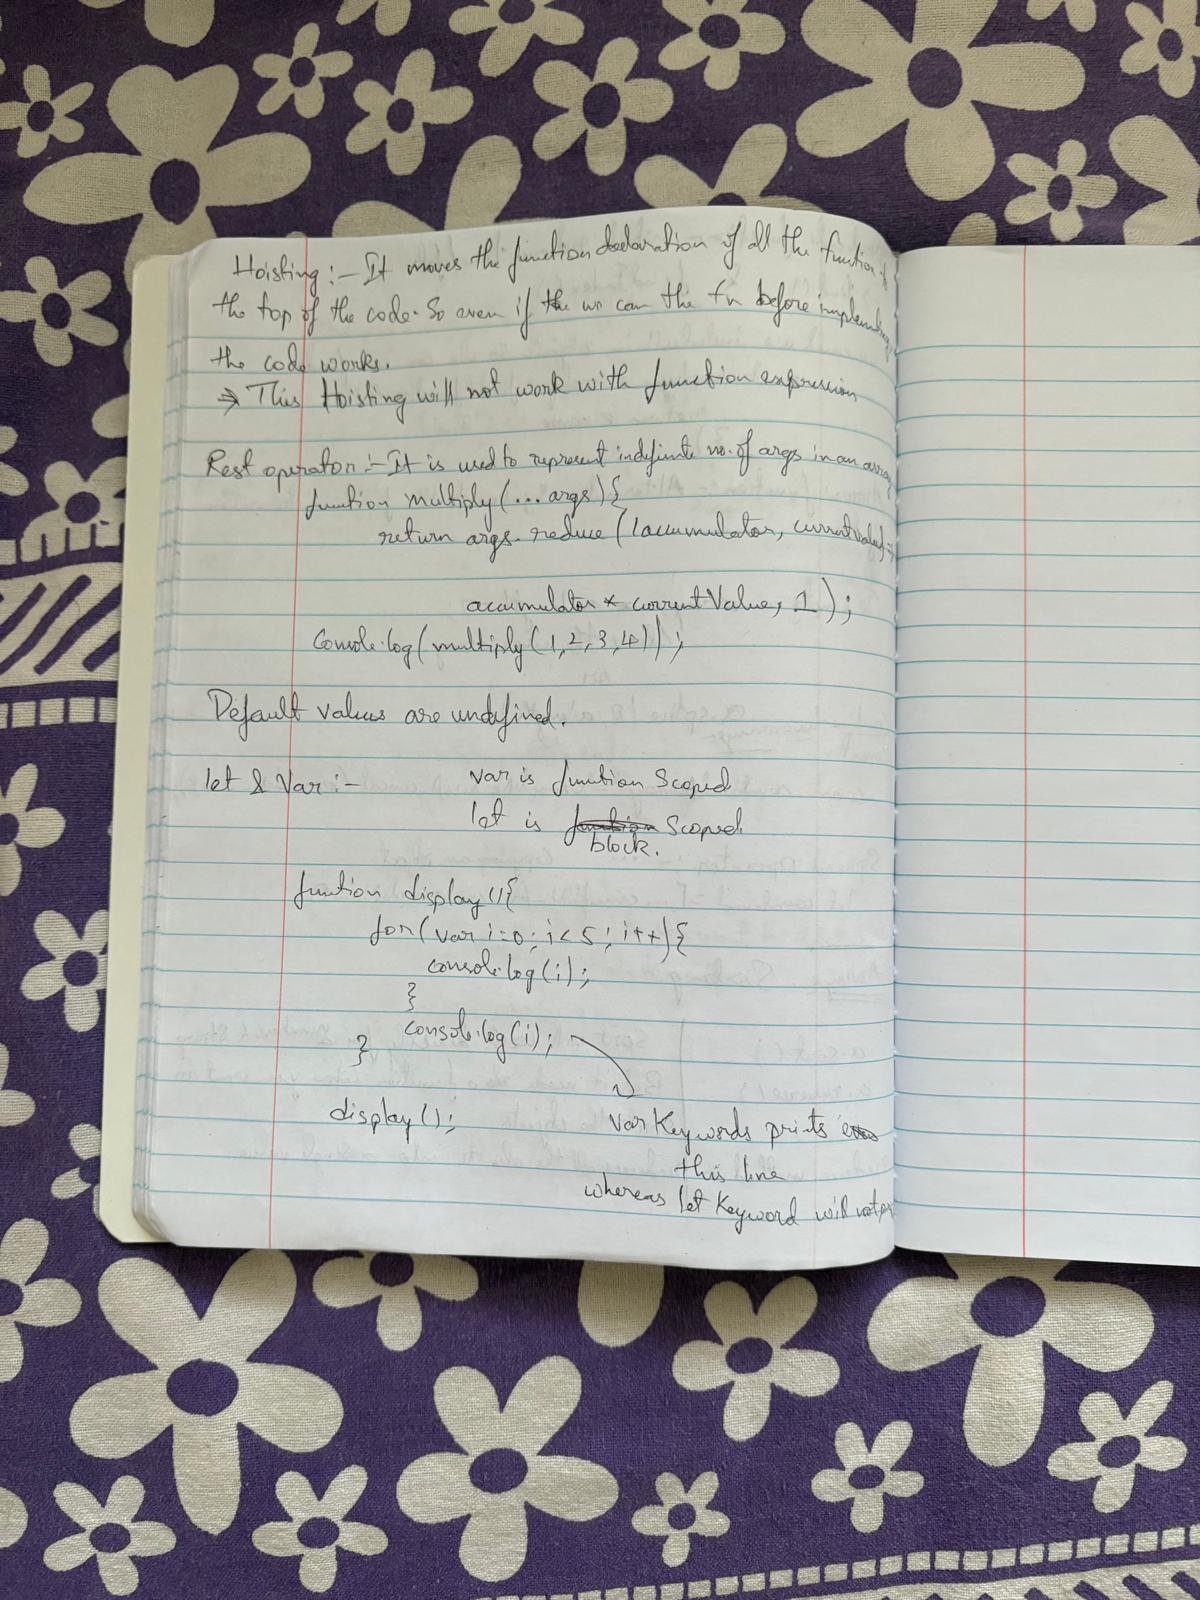 Hoisting :- It moves the function declaration of all the function
the top of the code. So even if the we can the fn before
the code works.
⇒ This Hoisting will not work with function expression
Rest operator :- It is used to represent indefinite no. of args in an array
function multiply (... args) {
return args. reduce ((accumulator, currentvalue) =>
accumulator * currentValue, 1 );
Console.log( multiply (1,2,3,4) );
Default values are undefined.
let & Var :- var is function Scoped
let is Scoped
block.
function display () {
for( var i=0; i< 5; i++) {
console.log(i);
}
console.log(i);
}
display();
var Keywords prints
this line
whereas let Keyword will not